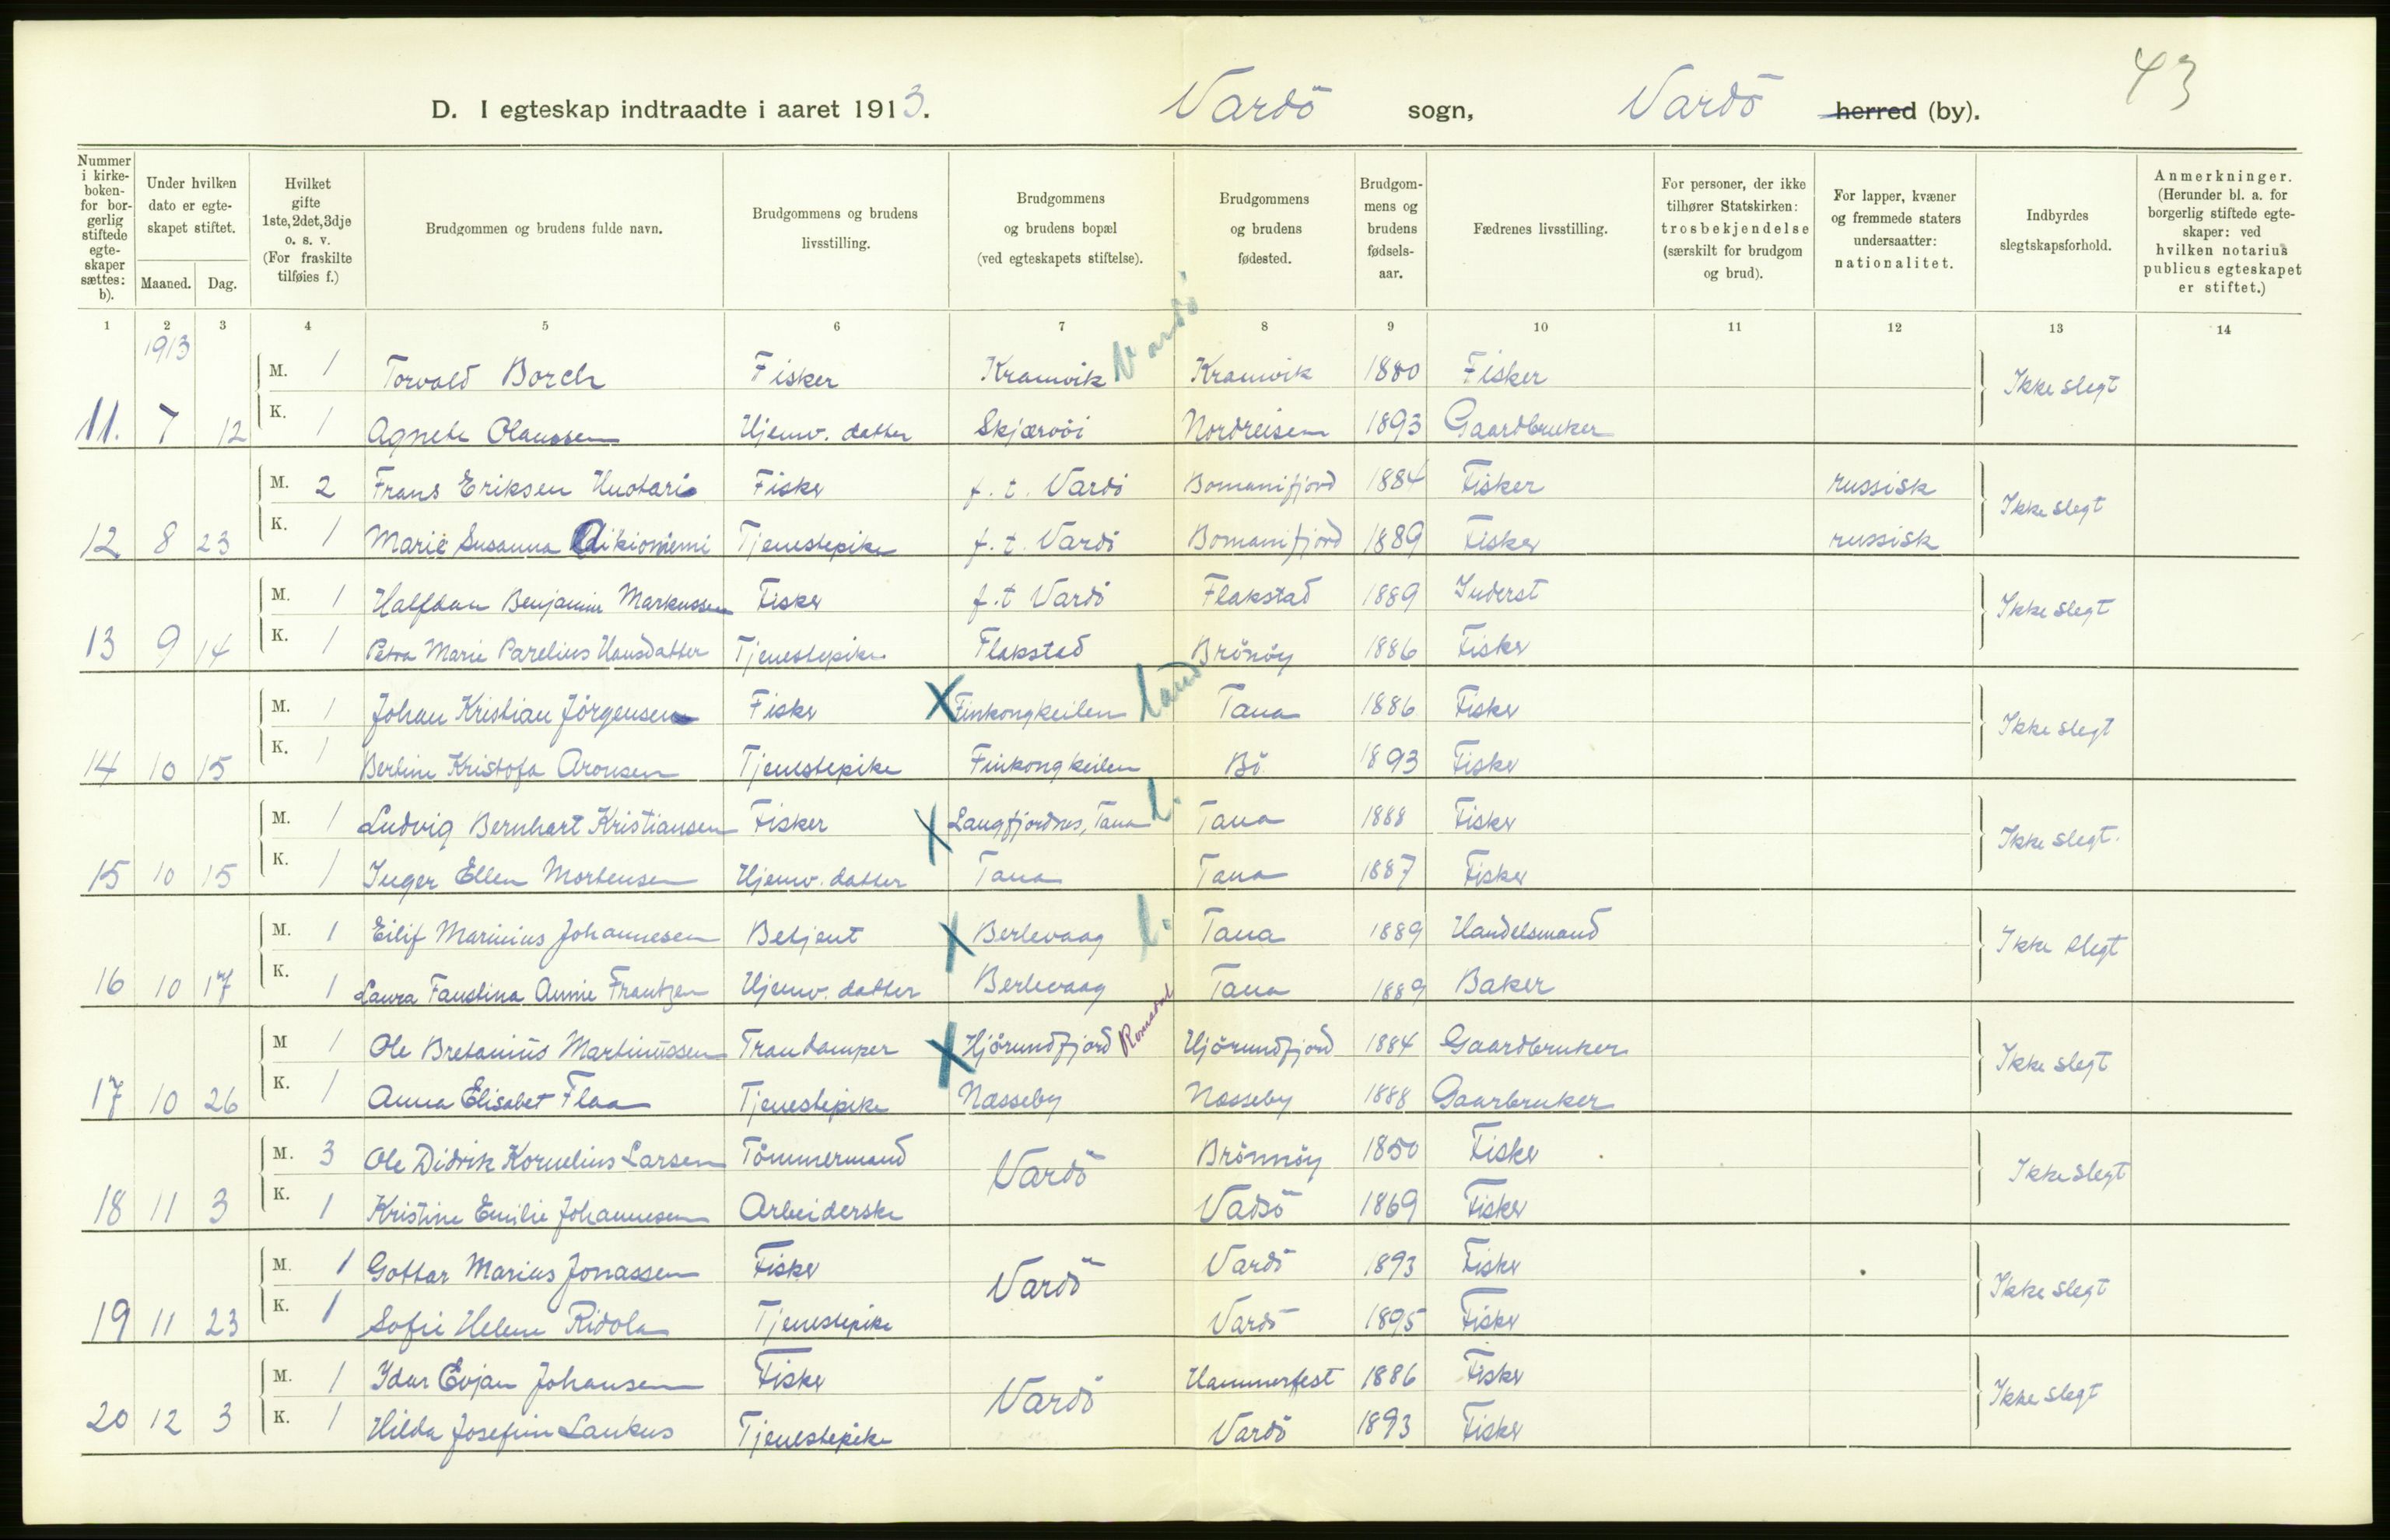 43
D. I egteskap indtraadte i aaret 1913. Vardö sogn, Vardö herred (by).
Nummer i kirkeboken- for borgerlig stiftede egteskaper sættes: b).
Under hvilken dato er egteskapet stiftet.
Maaned. Dag.
Hvilket gifte 1ste, 2det, 3dje o. s. v. (For fraskilte tilføies f.)
Brudgommen og brudens fulde navn.
Brudgommens og brudens livsstilling.
Brudgommens og brudens bopæl (ved egteskapets stiftelse).
Brudgommens og brudens fødested.
Brudgommens og brudens fødselsaar.
Fædrenes livsstilling.
For personer, der ikke tilhører Statskirken: trosbekjendelse (særskilt for brudgom og brud).
For lapper, kvæner og fremmede staters undersaatter: nationalitet.
Indbyrdes slegtskapsforhold.
Anmerkninger. (Herunder bl. a. for borgerlig stiftede egteskaper: ved hvilken notarius publicus egteskapet er stiftet.)
1 2 3 4 5 6 7 8 9 10 11 12 13 14
1913
M. 1 Torvald Borch Fisker Kramvik Vardö Kramvik 1880 Fisker Ikke slegt
11. 7 12 K. 1 Agnete Olaussen Hjemv. datter Skjærvöi Nordreisen 1893 Gaardbruker
M. 2 Frans Eriksen Huotari Fisker f. t. Vardö Bomanifjord 1884 Fisker russisk Ikke slegt
12 8 23 K. 1 Marie Susanna Aikioniemi Tjenestepike f. t. Vardö Bomanifjord 1889 Fisker russisk
M. 1 Halfdan Benjamin Markussen Fisker f. t Vardö Flakstad 1889 Inderst Ikke slegt
13 9 14 K. 1 Petra Marie Parelius Hansdatter Tjenestepike Flakstad Brönöy 1886 Fisker
M. 1 Johan Kristian Jörgensen Fisker X Finkongkeilen Land Tana 1886 Fisker Ikke slegt
14 10 15 K. 1 Berline Kristofa Aronsen Tjenestepike Finkongkeilen Bö 1893 Fisker
M. 1 Ludvig Bernhart Kristiansen Fisker X Langfjordnes, Tana L. Tana 1888 Fisker Ikke slegt.
15 10 15 K. 1 Inger Ellen Mortensen Hjemv. datter Tana Tana 1887 Fisker
M. 1 Eilif Marinius Johannesen Betjent X Berlevaag L. Tana 1889 Handelsmand Ikke slegt
16 10 17 K. 1 Laura Faustina Annie Frantzen Hjemv. datter Berlevaag Tana 1889 Baker
M 1 Ole Bretanius Martinussen Trandamper X Hjörundfjord Romsdal Hjörundfjord 1884 Gaardbruker Ikke slegt
17 10 26 K. 1 Anna Elisabet Flaa Tjenestepike Næsseby Næsseby 1888 Gaarbruker
M. 3 Ole Didrik Kornelius Larsen Tömmermand Vardö Brönnöy 1850 Fisker Ikke slegt
18 11 3 K. 1 Kristine Emilie Johannesen Arbeiderske Vadsö 1869 Fisker
M. 1 Gottar Marius Jonassen Fisker Vardö Vardö 1893 Fisker Ikke slegt
19 11 23 K. 1 Sofie Helene Ridola Tjenestepike Vardö 1895 Fisker
M. 1 Idar Evjan Johansen Fisker Vardö Hammerfest 1886 Fisker Ikke slegt
20 12 3 K. 1 Hilda Josefine Laukus Tjenestepike Vardö 1893 Fisker